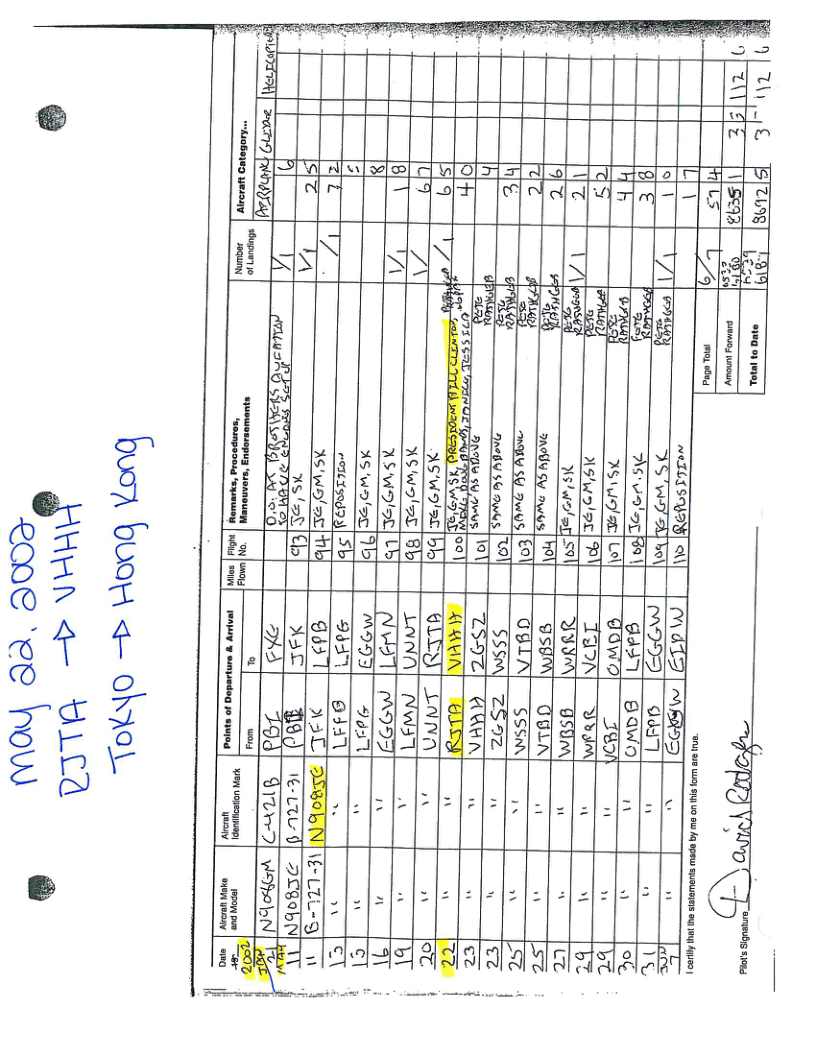 May 22, 2002
RJTA → VHHH
TOKYO → Hong Kong
Date Aircraft Make and Model Aircraft Identification Mark Points of Departure & Arrival From To Miles Flown Flight No. Remarks, Procedures, Maneuvers, Endorsements Number of Landings Aircraft Category...
2002 AIRPLANE GLIDER HELICOPTER
21 N908GM C-421B PBI FXE 1/1 6
MAY
11 N908JE B-727-31 JFK 93 JE, SK 1/1 2 5
11 B-727-31 N908JE JFK LFPB 94 JE, GM, SK /1 7 2
13 " " LFPB LFPG 95 REPOSITION
13 " " LFPG EGGW 96 JE, GM, SK 8
16 " " EGGW LFMN 97 JE, GM, SK 1/1 1 8
19 " " LFMN UNNT 98 JE, GM, SK 1/ 6 7
20 " " UNNT RJTA 99 JE, GM, SK /1 6 5
22 " " RJTA VHHH 100 JE, GM, SK, PRESIDENT BILL CLINTON, 4 0
23 " " VHHH ZGSZ 101 SAME AS ABOVE PETE RATHGEB 4
23 " " ZGSZ WSSS 102 SAME AS ABOVE PETE RATHGEB 3 4
25 " " WSSS VTBD 103 SAME AS ABOVE PETE RATHGEB 2 2
25 " " VTBD WBSB 104 SAME AS ABOVE PETE RATHGEB 2 6
27 " " WBSB WRRR 105 JE, GM, SK PETE RATHGEB 1/1 2 1
29 " " WRRR VCBI 106 JE, GM, SK PETE RATHGEB 5 2
29 " " VCBI OMDB 107 JE, GM, SK PETE RATHGEB 4 4
30 " " OMDB LFPB 108 JE, GM, SK PETE RATHGEB 3 8
31 " " LFPB EGGW 109 JE, GM, SK PETE RATHGEB 1/1 1 0
JUN
7 " " EGGW 110 REPOSITION 1 7
I certify that the statements made by me on this form are true.
Page Total 6/7 57 4
Amount Forward 8635 1 3 5 112 6
Total to Date 8692 5 3 112 6
Pilot's Signature David Rodgers